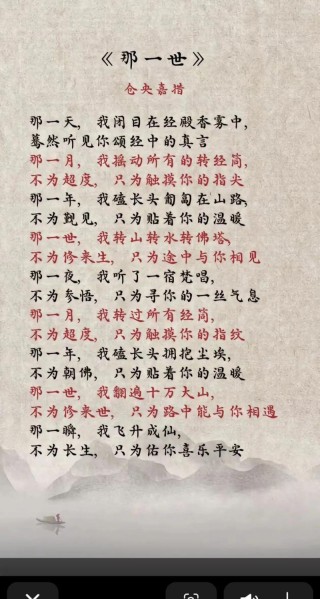 《那一世》
仓央嘉措
那一天, 我闭目在经殿香雾中,
蓦然听见你颂经中的真言
那一月, 我摇动所有的转经筒,
不为超度, 只为触摸你的指尖
那一年, 我磕长头匍匐在山路,
不为觐见, 只为贴着你的温暖
那一世, 我转山转水转佛塔,
不为修来生, 只为途中与你相见
那一夜, 我听了一宿梵唱,
不为参悟, 只为寻你的一丝气息
那一月, 我转过所有经筒,
不为超度, 只为触摸你的指纹
那一年, 我磕长头拥抱尘埃,
不为朝佛, 只为贴着你的温暖
那一世, 我翻遍十万大山,
不为修来世, 只为路中能与你相遇
那一瞬, 我飞升成仙,
不为长生, 只为佑你喜乐平安